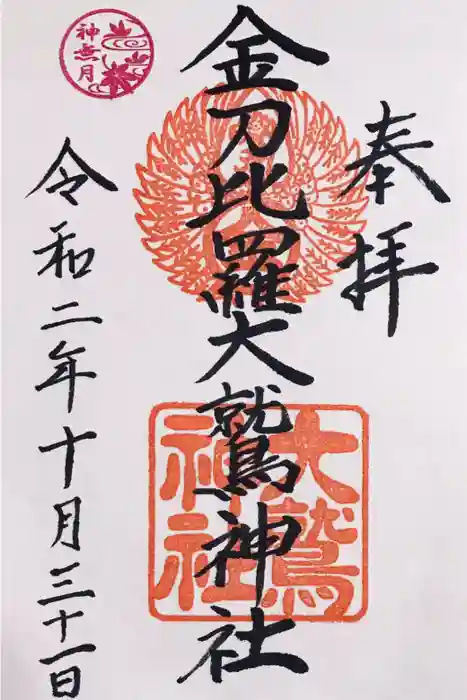 奉拝
金刀比羅大鷲神社
令和二年十月三十一日
神無月
大鷲
神社